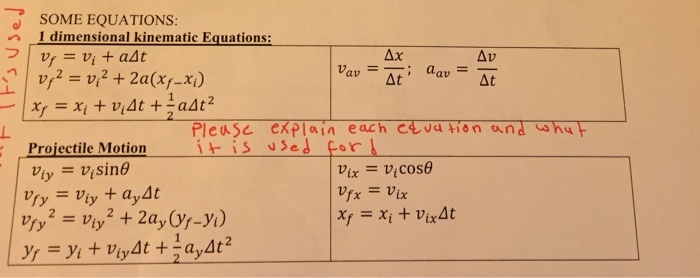 SOME EQUATIONS:
1 dimensional kinematic Equations:
v_f = v_i + aΔt
v_f² = v_i² + 2a(x_f−x_i)
x_f = x_i + v_iΔt + ½aΔt²
v_av = Δx/Δt; a_av = Δv/Δt
Please explain each equation and what
it is used for!
Projectile Motion
v_iy = v_i sinθ
v_fy = v_iy + a_yΔt
v_fy² = v_iy² + 2a_y(y_f−y_i)
y_f = y_i + v_iyΔt + ½a_yΔt²
v_ix = v_i cosθ
v_fx = v_ix
x_f = x_i + v_ixΔt
It's used